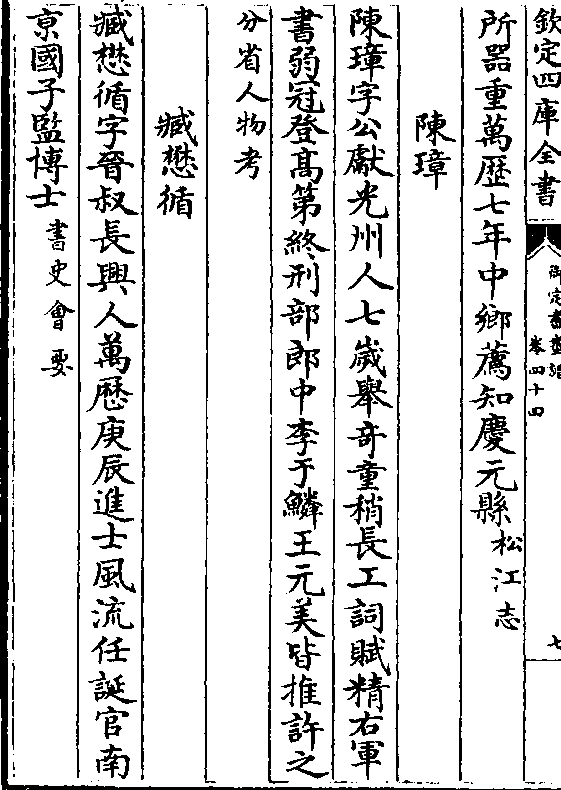 欽定四庫全書
御定書畫譜
卷四十四
七
所器重萬歴七年中鄉薦知慶元縣松江志
陳璋
陳璋字公獻光州人七歲舉奇童稍長工詞賦精右軍
書弱冠登髙第終刑部郎中李于鱗王元美皆推許之
分省人物考
臧懋循
臧懋循字晉叔長興人萬歴庚辰進士風流任誕官南
京國子監博士書史會要